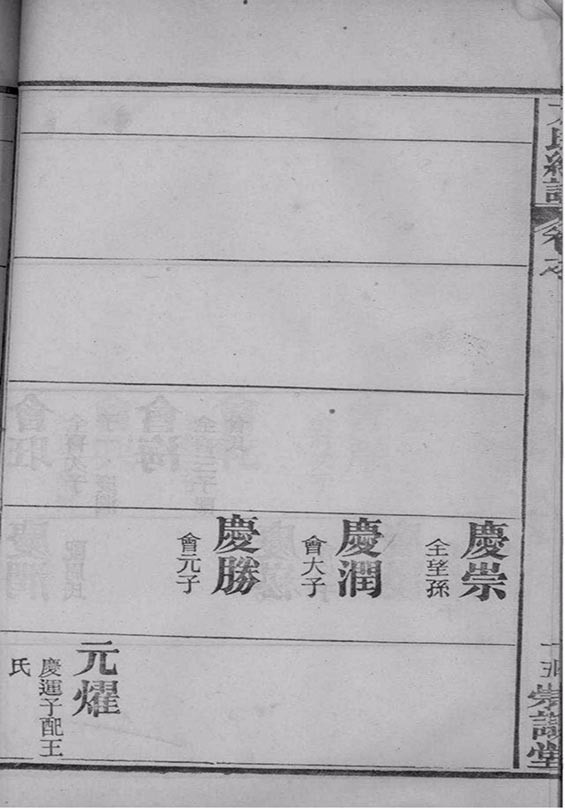 氏統譜
慶崇
全望孫
慶潤
會大子
慶勝
會元子
元燿
慶運子配王
氏
崇讓堂